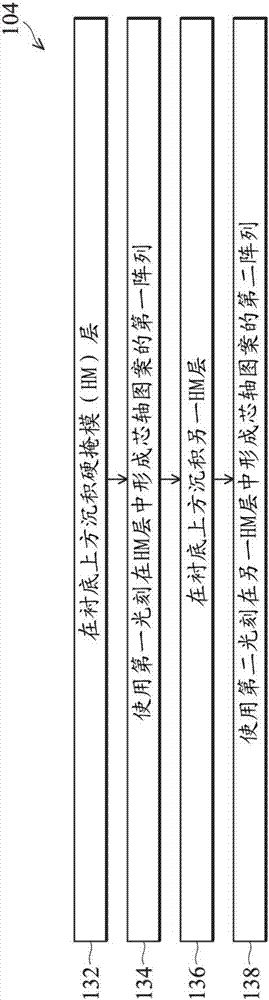 104
132
在衬底上方沉积硬掩模（HM）层
134
使用第一光刻在HM层中形成芯轴图案的第一阵列
136
在衬底上方沉积另一HM层
138
使用第二光刻在另一HM层中形成芯轴图案的第二阵列